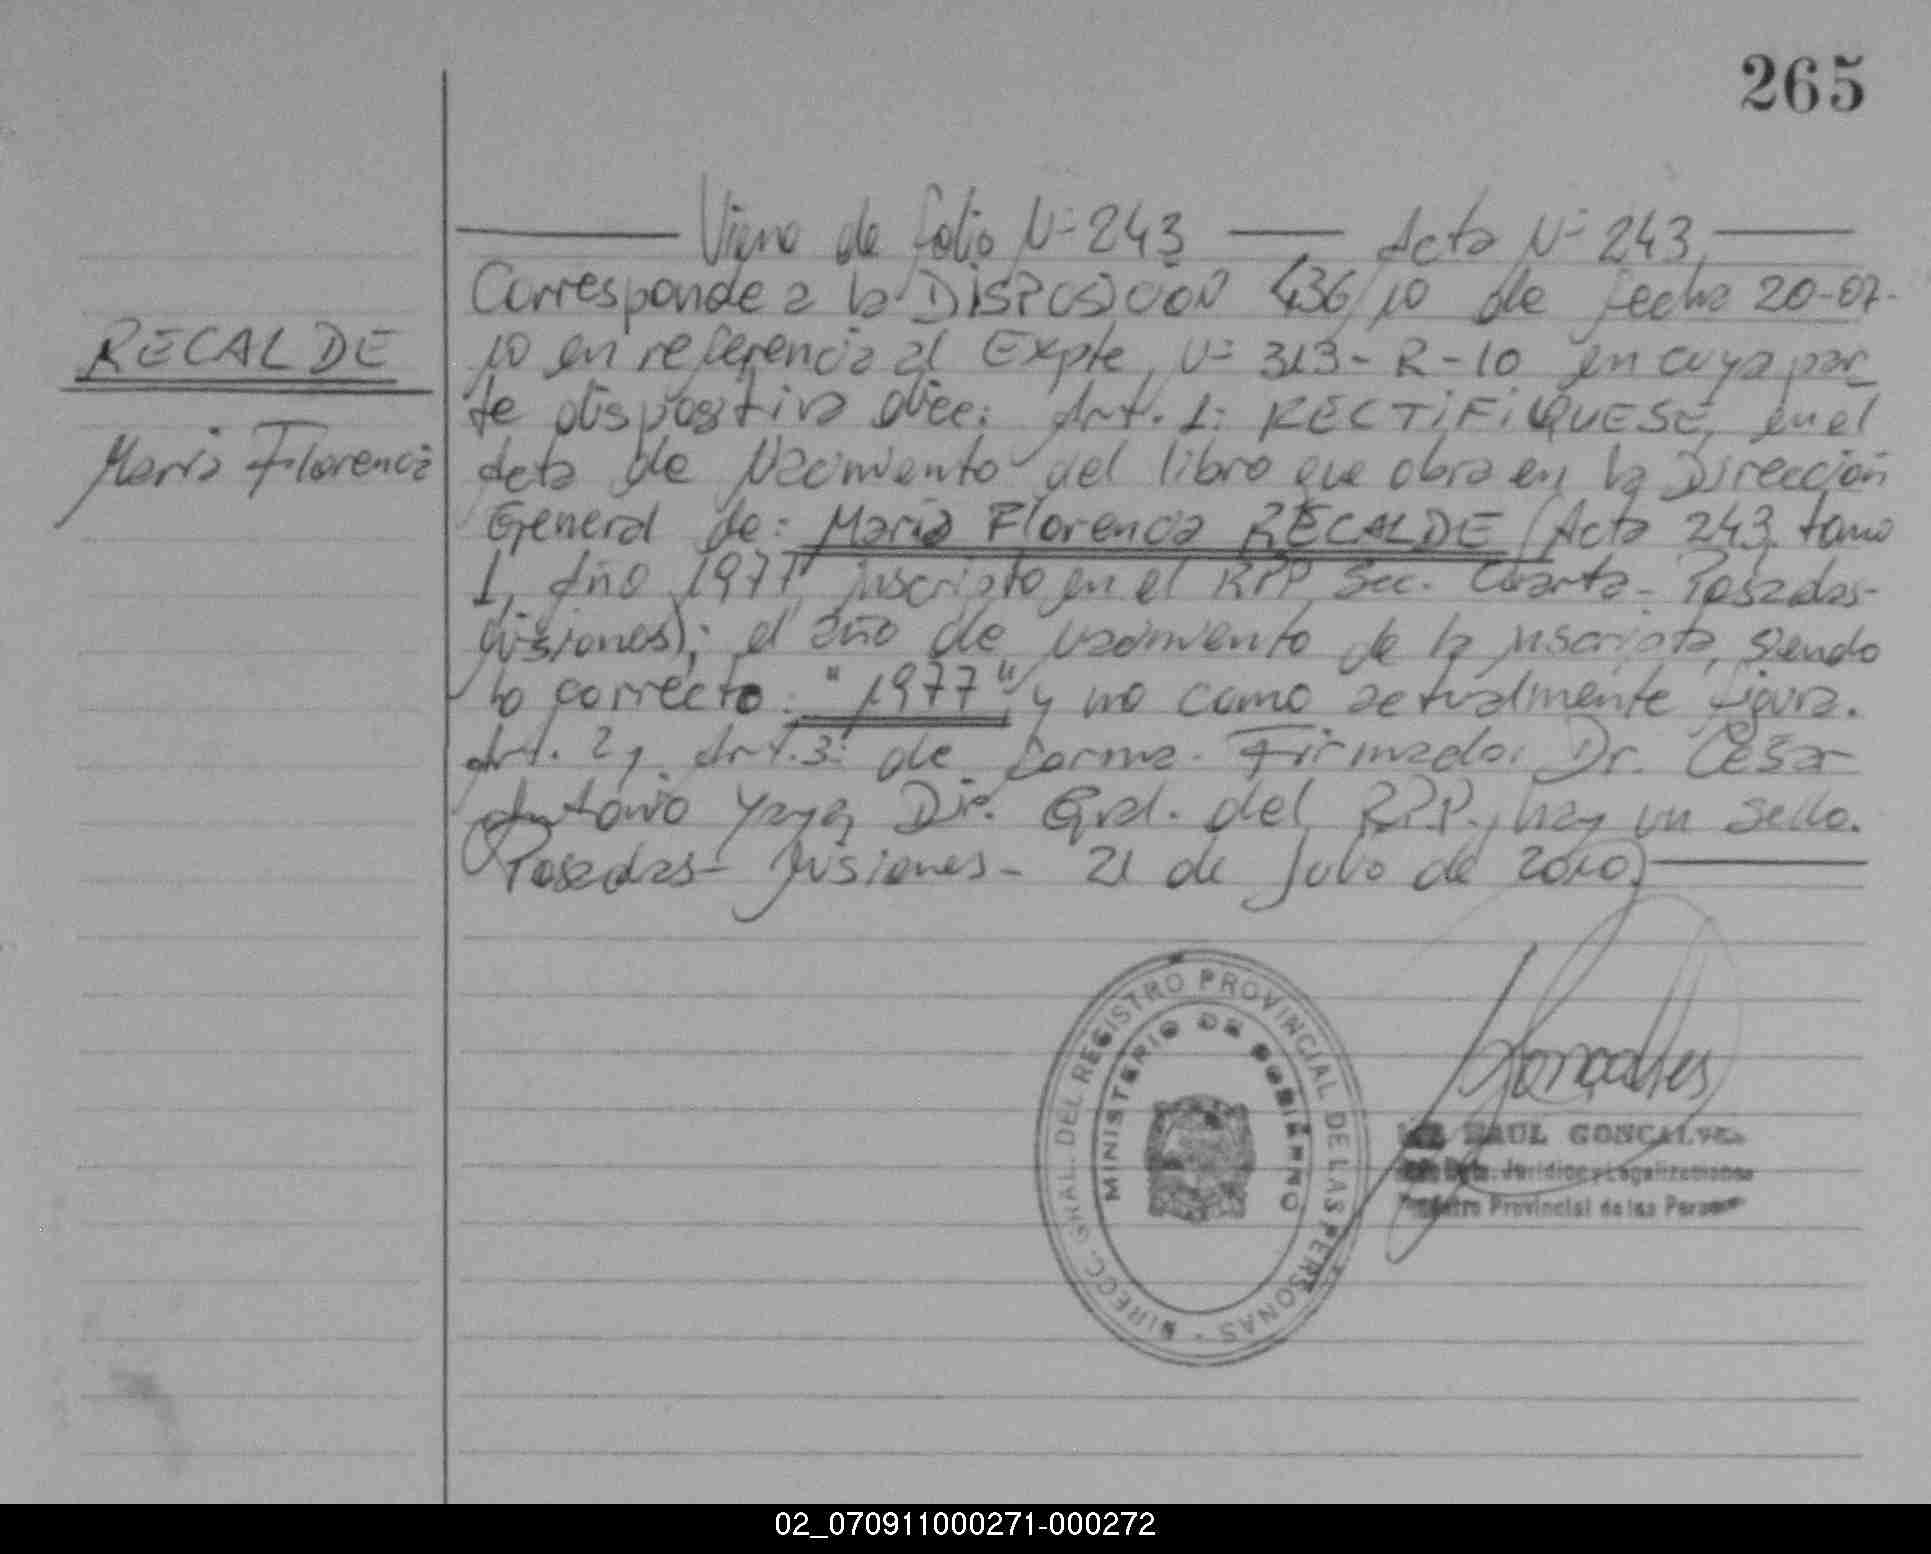 265
Viene de folio Nº 243 — Acta Nº 243
RECALDE
Maria Florencia
Corresponde a la DISPOSICION 436/10 de fecha 20-07-
10 en referencia al Expte, Nº 313-R-10 en cuya par_
te dispositiva dice: Art. 1: RECTIFIQUESE, en el
Acta de Nacimiento del libro que obra en la Dirección
General de: Maria Florencia RECALDE (Acta 243, tomo
1, Año 1977 inscripto en el RPP, Sec. Cuarta - Posadas-
Misiones); el año de nacimiento de la inscripta, siendo
lo correcto: "1977" y no como actualmente figura.
Art. 2, Art. 3: de forma. Firmado: Dr. César
Antonio Yaya, Dir. Gral. del RPP., hay un sello.
Posadas- Misiones- 21 de Julio de 2010)
DIRECC. GRAL. DEL REGISTRO PROVINCIAL DE LAS PERSONAS
MINISTERIO DE GOBIERNO
Goncalves
RAUL GONCALVES
Dpto. Jurídico y Legalizaciones
Registro Provincial de las Personas
02_070911000271-000272